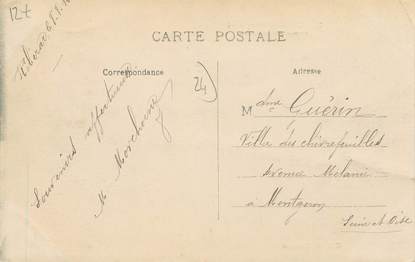 12+
CARTE POSTALE
Correspondance
Adresse
24)
Souvenirs affectueux
M
Mdme Guérin
Villa des chèvrefeuilles
Avenue Mélanie
a Montgeron
Seine et Oise